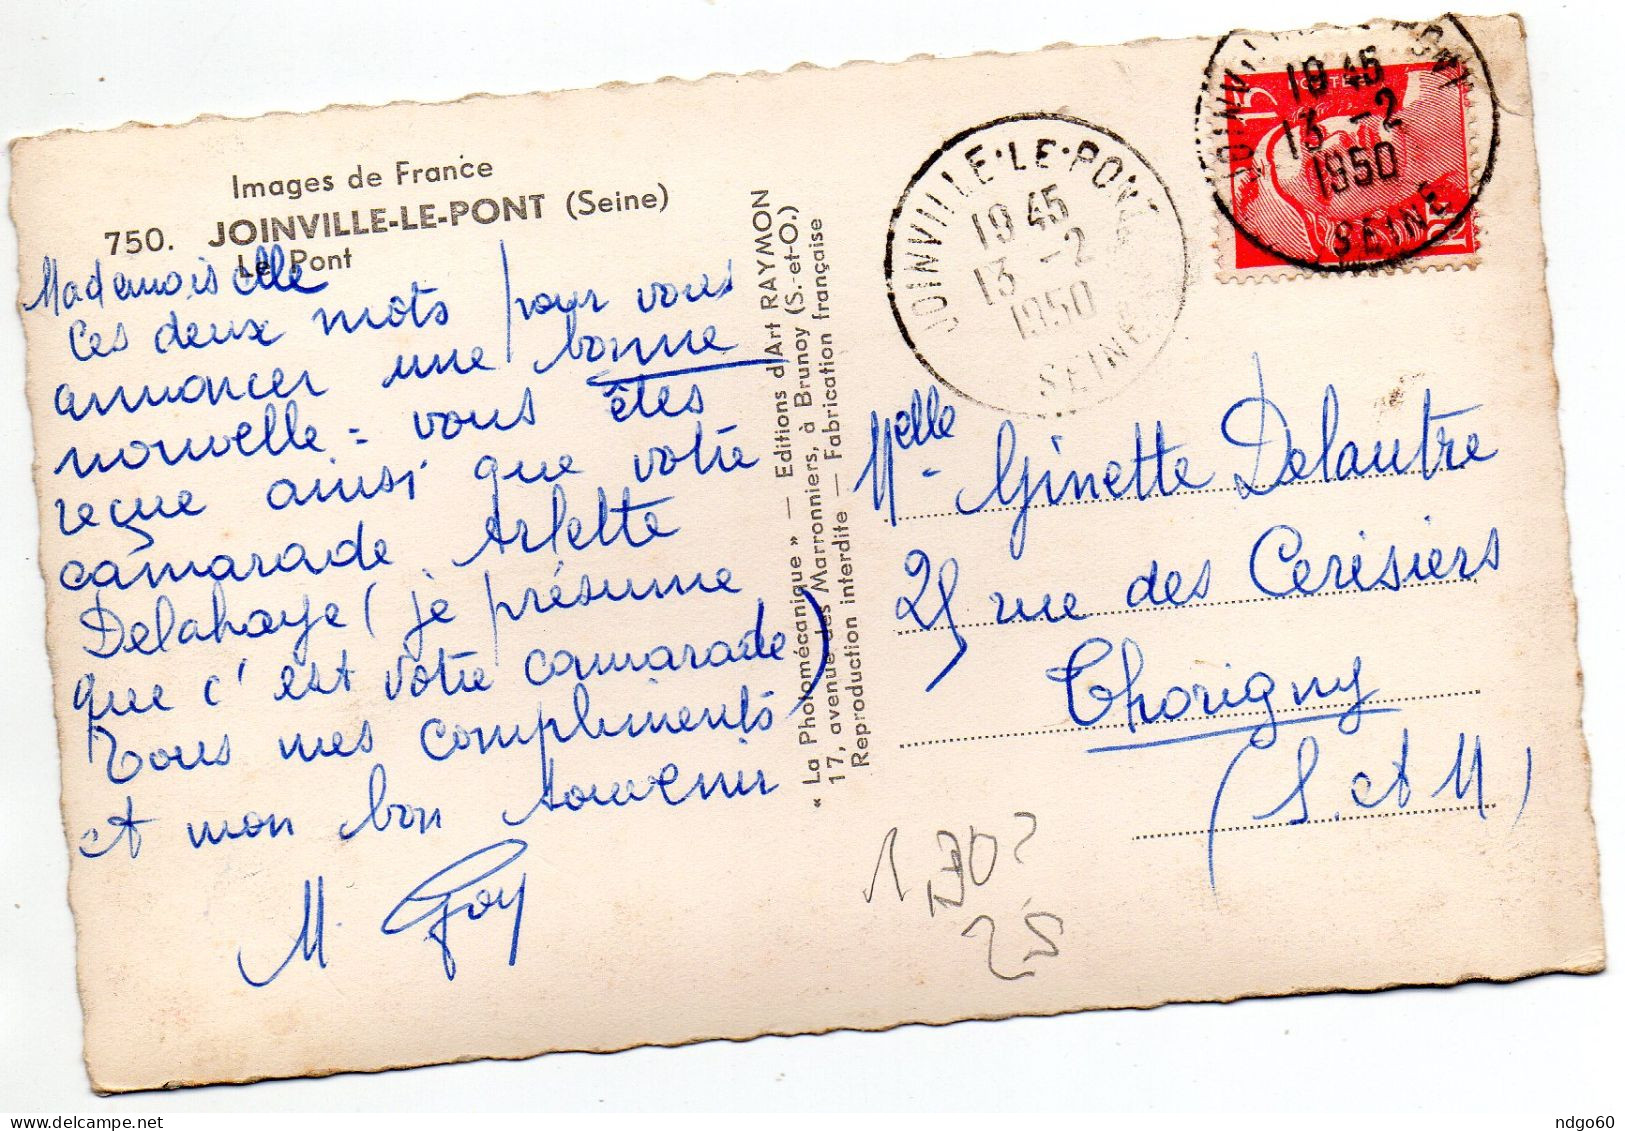 Images de France
750. JOINVILLE-LE-PONT (Seine)
Le Pont
Mademoiselle
Ces deux mots pour vous
annoncer une bonne
nouvelle = vous êtes
reçue ainsi que votre
camarade Arlette
Delahaye (je présume
que c'est votre camarade)
Tous mes compliments
et mon bon souvenir
M. Goy
« La Photomécanique » — Editions d'Art RAYMON
17, avenue des Marronniers, à Brunoy (S.-et-O.)
Reproduction interdite — Fabrication française
JOINVILLE-LE-PONT
19 45
13 -2
1950
SEINE
JOINVILLE-LE-PONT
19 45
13 -2
1950
SEINE
15
Melle Ginette Delautre
25 rue des Cerisiers
Thorigny
(S. et M)
25
ndgo60